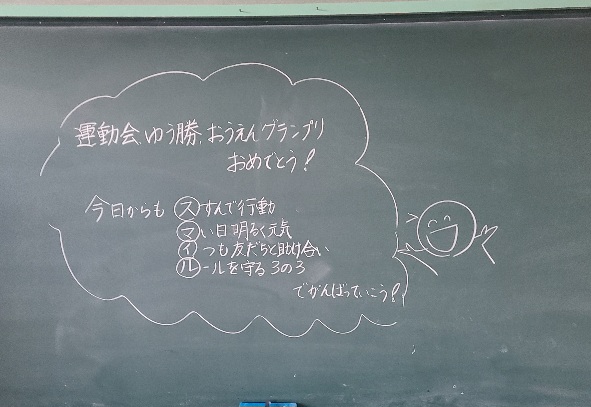 運動会、ゆう勝、おうえんグランプリ
おめでとう!
今日からも スすんで行動
マい日明るく元気
イつも友だちと助け合い
ルールを守る 3の3
でがんばっていこう!